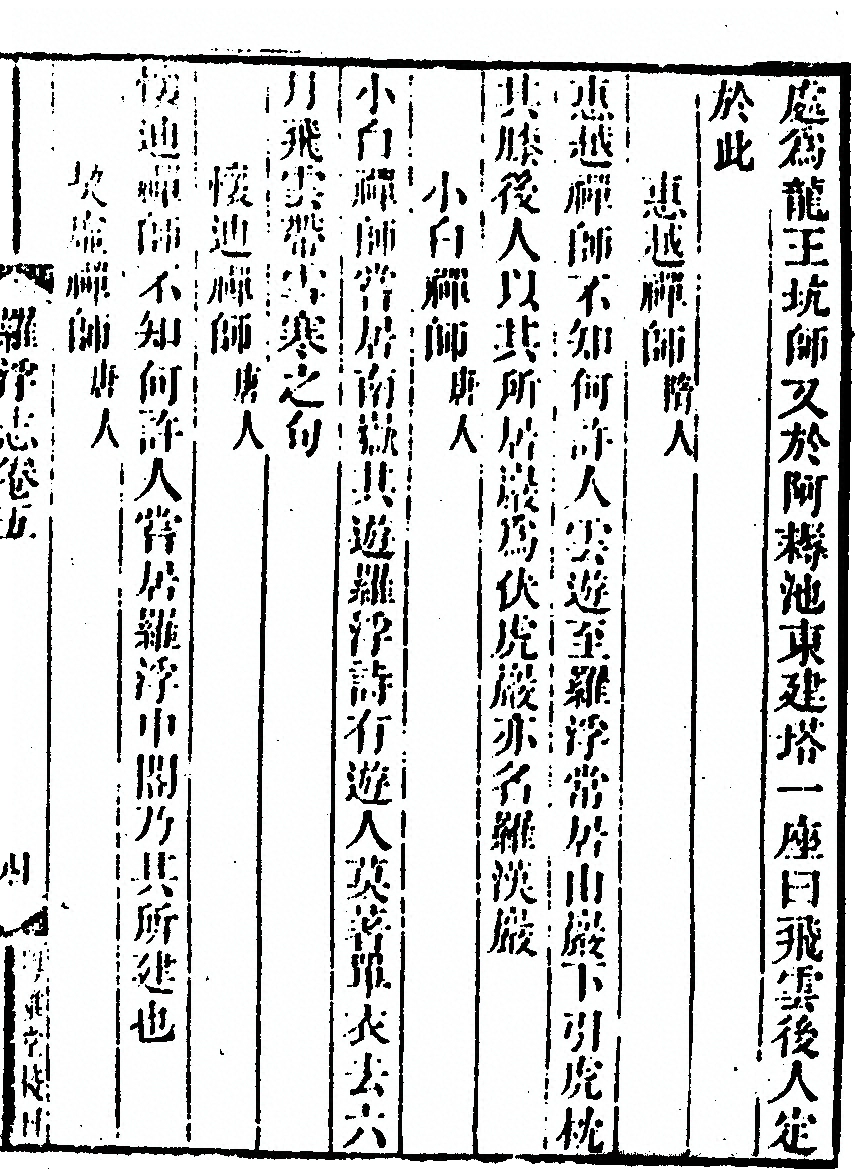 處爲龍王坑師又於阿耨池東建塔一座曰飛雲後人定
於此
惠越禪師隋人
惠越禪師不知何許人雲遊至羅浮常居山巖下引虎枕
其膝後人以其所居巖爲伏虎巖亦名羅漢巖
小白禪師唐人
小白禪師嘗居南嶽其遊羅浮詩有遊人莫著單衣去六
月飛雲帶雪寒之句
懷迪禪師唐人
懷迪禪師不知何許人嘗居羅浮中閣乃其所建也
禪師唐人
羅浮志卷五
四